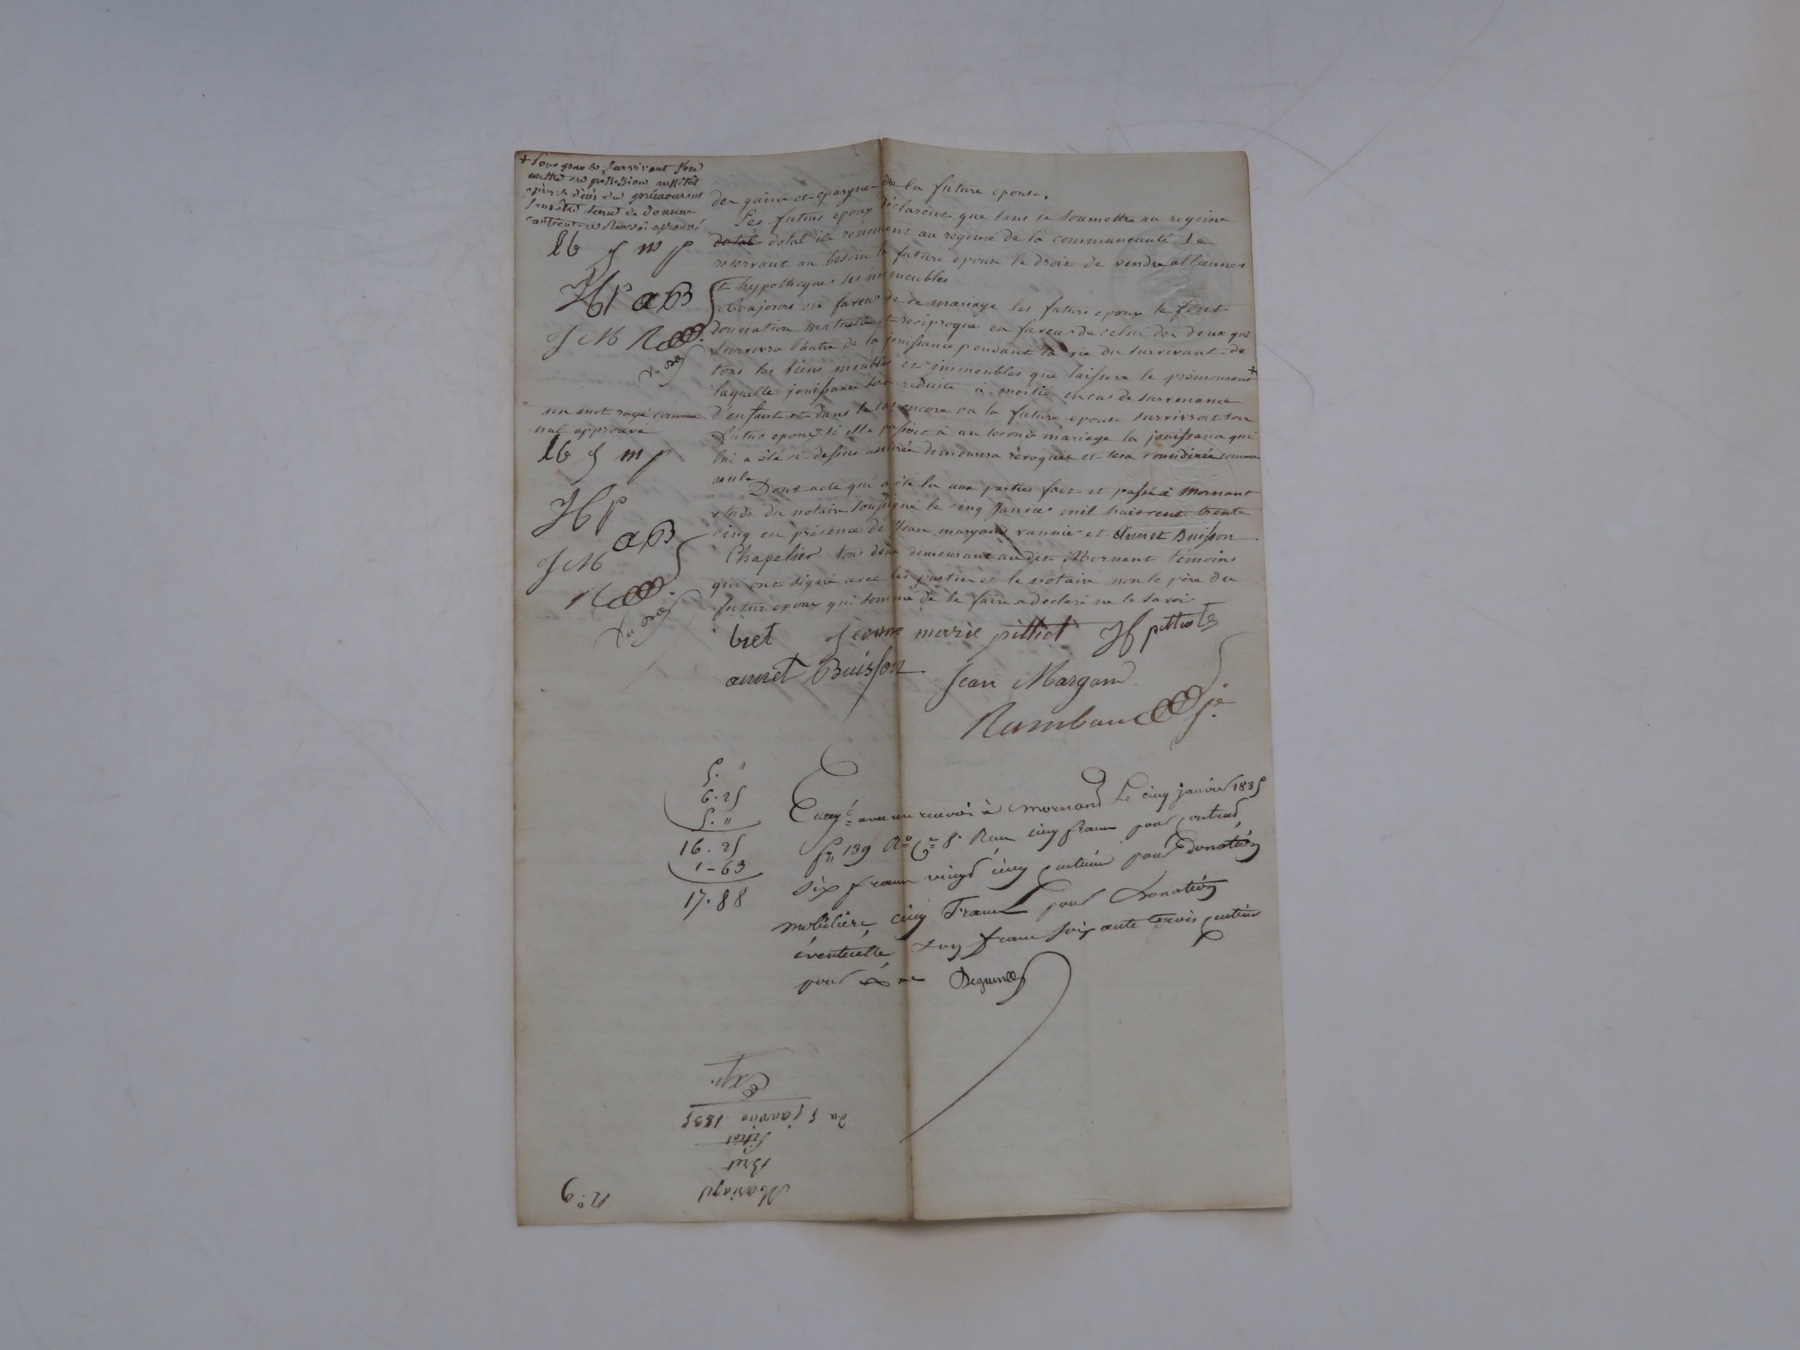 + pour par le survivant être
mettre en possession aussitôt
après le décès du prémourant
sans être tenu de donner
caution. ce Renvoi approuvé
lb j m p
JHP aB
J M R
un mot rayé comme
nul approuvé
lb j m p
JHP
aB
J M
R
des gains et epargnes de la future epouse.
Les futurs epoux déclarent que sans se soumettre au regime
dotal dotal ils renoncent au regime de la communauté se
reservant au besoin la future epouse le droit de vendre alliener
et hypothequer les immeubles
Toujours en faveur de mariage les futurs epoux se font
donnation mutuelle et reciproque en faveur de celui des deux qui
survivra l'autre de la jouissance pendant la vie du survivant de
tous les biens meubles et immeubles que laissera le prémourant +
laquelle jouissance sera reduite à moitié en cas de survenance
d'enfant et dans le cas encore ou la future epouse survivroit son
futur epoux si elle passoit à un second mariage la jouissance qui
lui a été ci dessus assurée demeurera révoquée et sera considerée comme
nulle
Dont acte qui a été lu aux parties fait et passé à Mornant
etude du notaire soussigné le cinq Janvier mil huit cent trente
cinq en présence de Jean margand vannier et Annet Buisson
Chapelier tous deux demeurant audit Mornant témoins
qui ont signé avec les parties et le notaire non le père du
futur epoux qui sommé de le faire a declaré ne le savoir
bret jeanne marie pitliot JH pitliot
annet Buisson Jean Margand
Rambaud je
5. "
6. 25
5. "
16. 25
1 - 63
17. 88
Enregé avec un renvoi à mornant Le cinq janvier 1835
fo 139 Ro Ce 8. Reçu cinq francs pour contrat
six francs vingt cinq centimes pour Donation
mobilière, cinq francs pour Donation
éventuelle, un franc soixante trois centimes
pour xme
n°. 9
Mariage
Bret
du 5 janvier 1835
Exp.